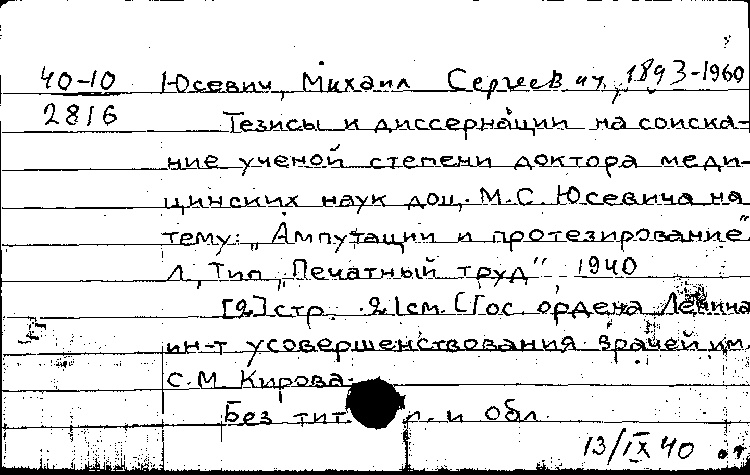 40-10 Юсевич, Михаил Сергеевич, 1893-1960
2816 Тезисы к диссертации на соиска-
ние ученой степени доктора меди-
цинских наук доц. М.С. Юсевича на
тему: „Ампутации и протезирование".
Л., Тип „Печатный труд" 1940
[2] стр. 21см. (Гос. ордена Ленина
ин-т усовершенствования врачей им.
С.М. Кирова.
Без тит. л. и обл.
13/IX 40